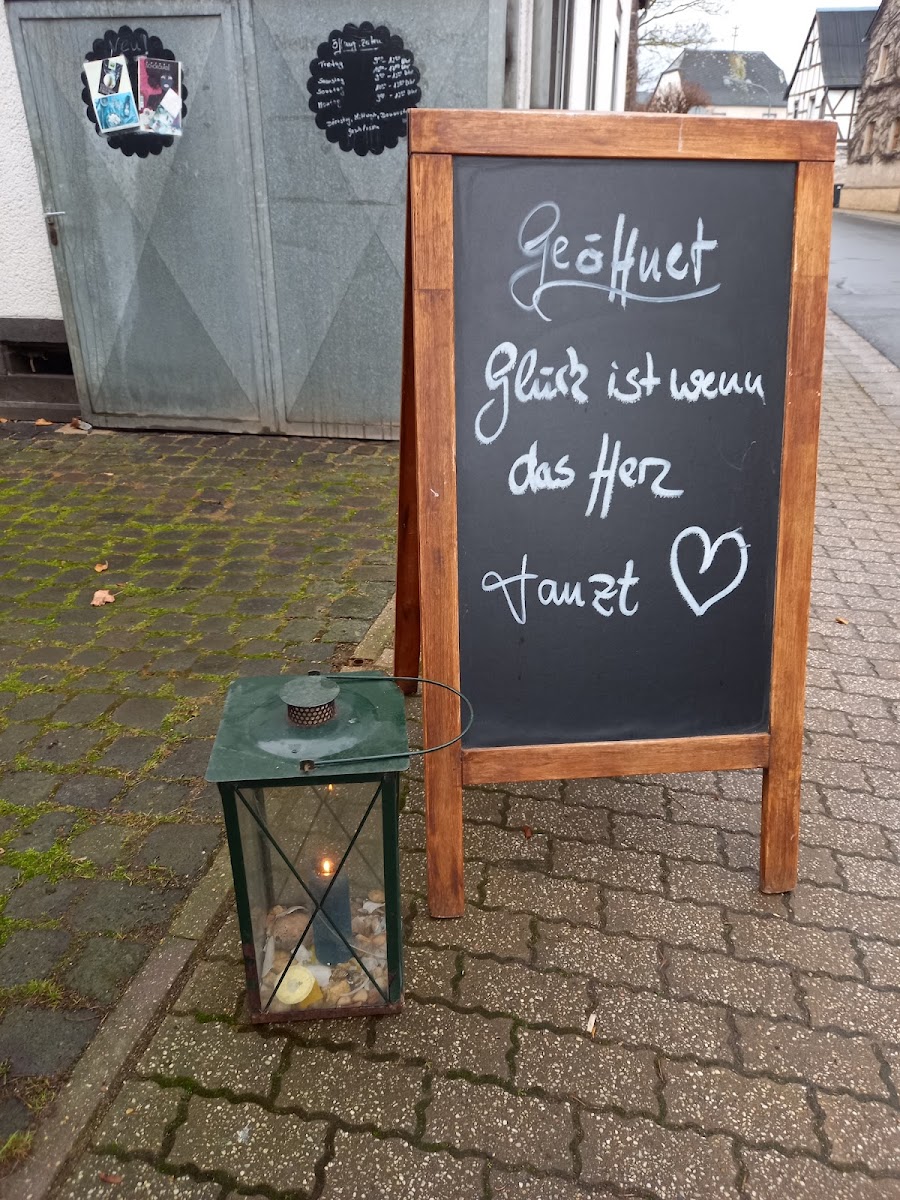 Neu!
Öffnungszeiten
Freitag
Samstag
Sonntag
Montag
Dienstag, Mittwoch, Donnerstag
geschlossen
Geöffnet
Glück ist wenn
das Herz
tanzt